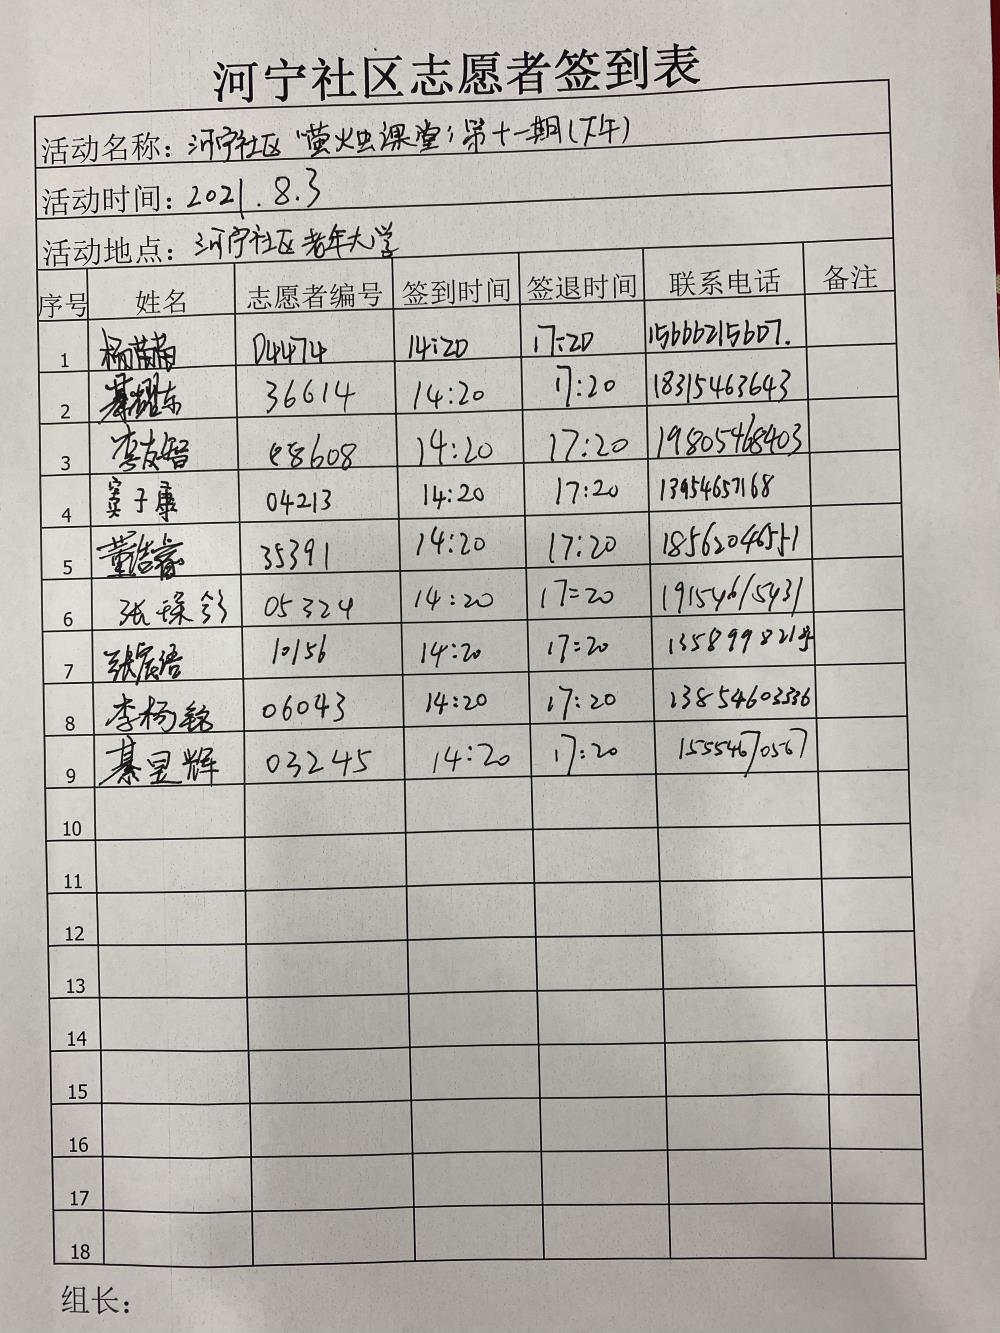 河宁社区志愿者签到表
活动名称：河宁社区“萤火虫课堂”第十一期(下午)
活动时间：2021.8.3
活动地点：河宁社区老年大学
序号 姓名 志愿者编号 签到时间 签退时间 联系电话 备注
1 杨 04474 14:20 17:20 15666215607.
2 綦耀东 36614 14:20 17:20 18315463643
3 李友智 08608 14:20 17:20 19805468403
4 窦子康 04213 14:20 17:20 13954657168
5 董浩睿 35391 14:20 17:20 18562046551
6 张 05324 14:20 17:20 19154615431
7 张宸语 10156 14:20 17:20
8 李杨铭 06043 14:20 17:20 13854603536
9 綦昱辉 03245 14:20 17:20 15554670567
10
11
12
13
14
15
16
17
18
组长：